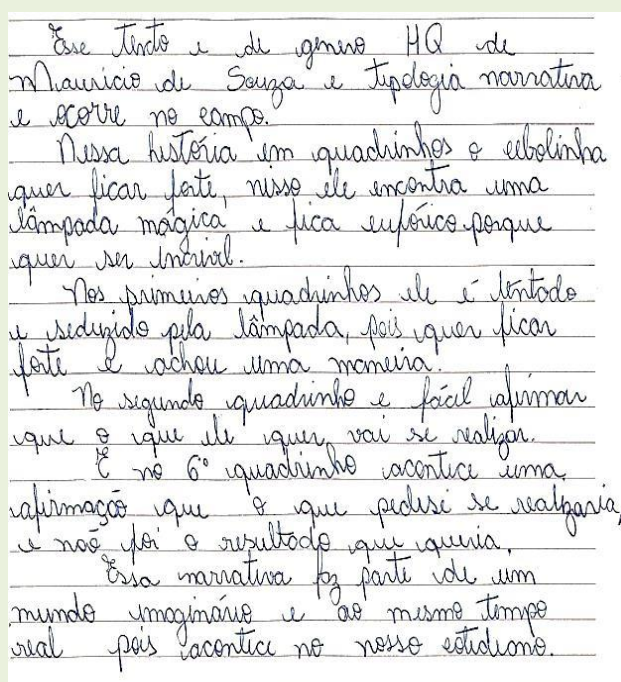 Esse texto e de genero HQ de
Mauricio de Souza e tipologia narrativa
e ocorre no campo.
Nessa história em quadrinhos o cebolinha
quer ficar forte, nisso ele encontra uma
lâmpada mágica e fica eufórico porque
quer ser incrivel.
Nos primeiros quadrinhos ele é tentado
e seduzido pela lâmpada, pois quer ficar
forte e achou uma maneira.
No segundo quadrinho e fácil afirmar
que o que ele quer, vai se realizar.
E no 6° quadrinho acontece uma
afirmação que o que pedisi se realizaria,
e não foi o resultado que queria.
Essa narrativa faz parte de um
mundo imaginário e ao mesmo tempo
real pois acontece no nosso cotidiano.